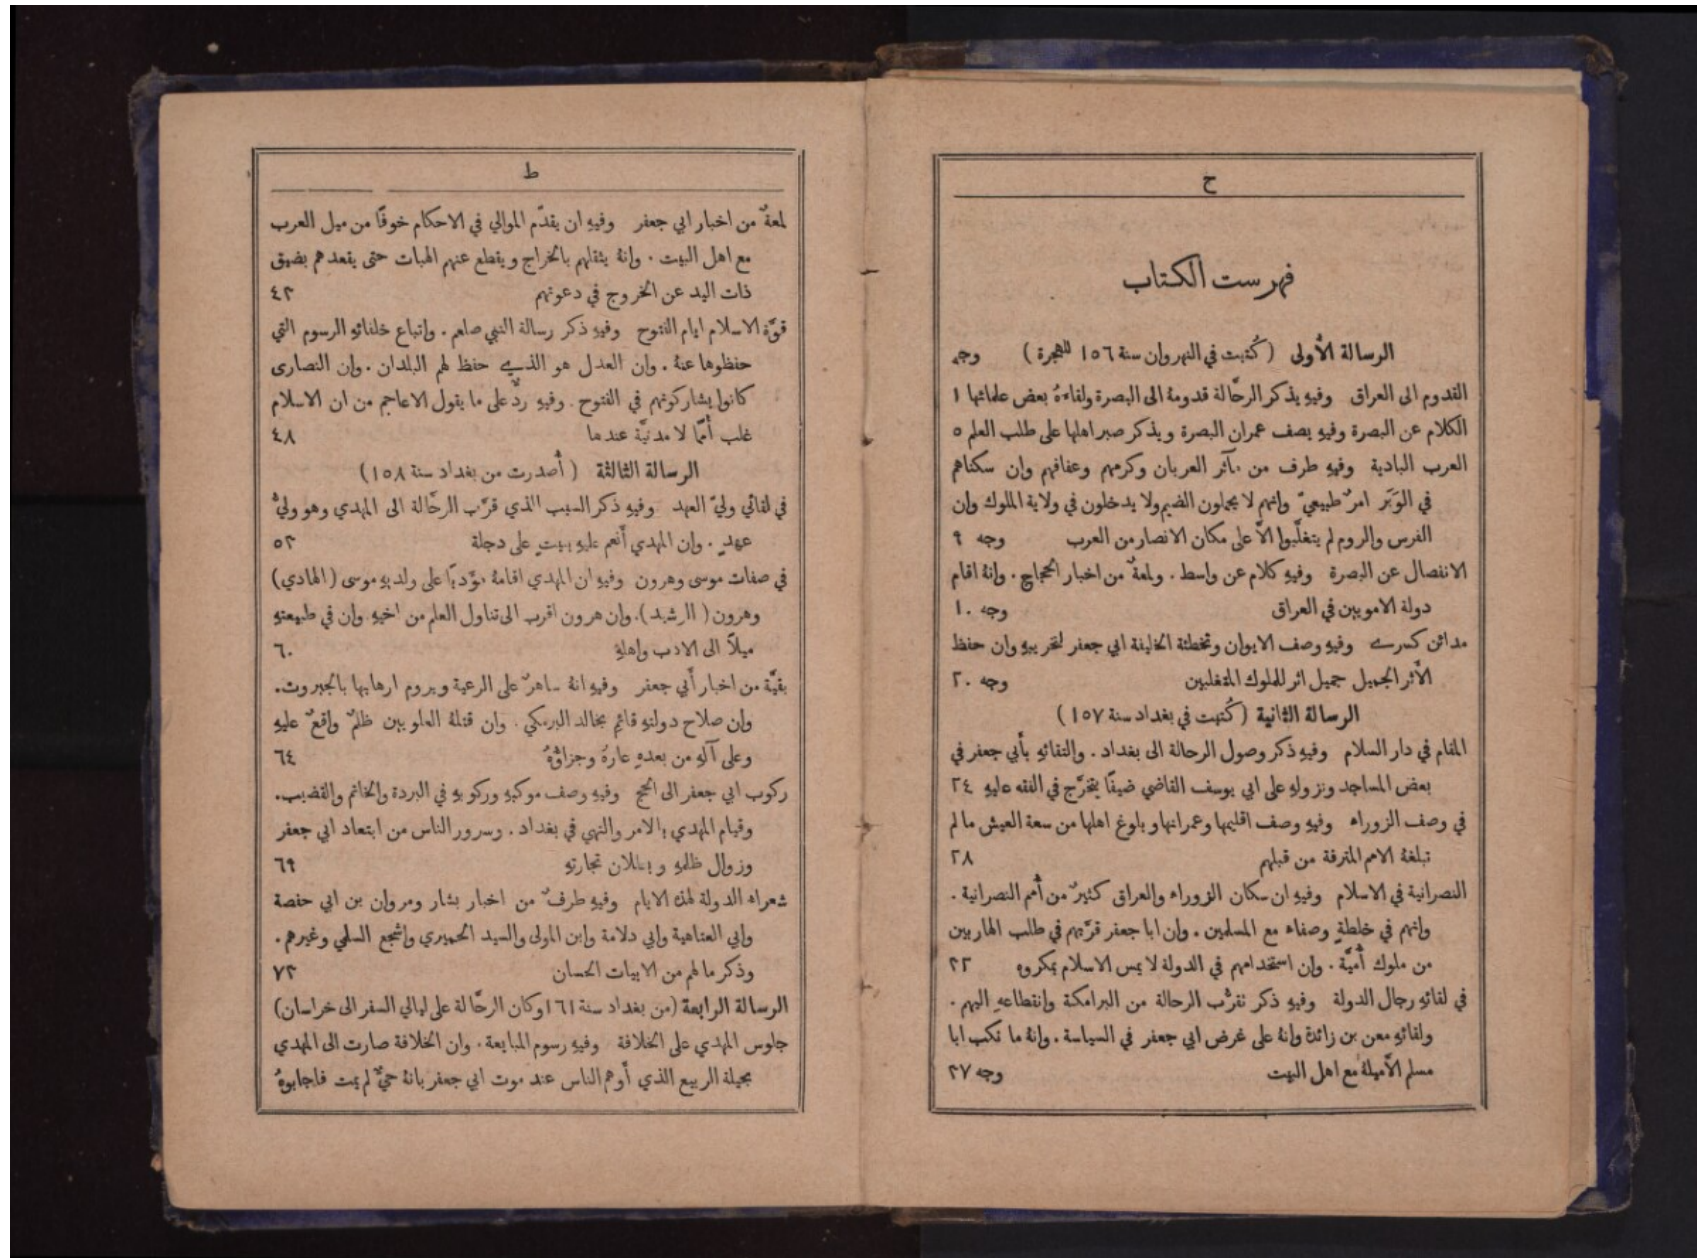 ح
فهرست الكتاب
الرسالة الأولى (كُتبت في النهروان سنة ١٥٦ للهجرة) وجه
القدوم الى العراق وفيهِ يذكر الرحَّالة قدومهُ الى البصرة ولقاءهُ بعض علمائها ١
الكلام عن البصرة وفيهِ يصف عمران البصرة ويذكر صبر اهلها على طلب العلم ٥
العرب البادية وفيهِ طرف من مآثر العربان وكرمهم وعفافهم وان سكناهم
في الوَبَر امرٌ طبيعيّ وانهم لا يحملون الضيم ولا يدخلون في ولاية الملوك وان
الفرس والروم لم يتغلَّبوا الاَّ على مكان الانصار من العرب وجه ٩
الانفصال عن البصرة وفيهِ كلام عن واسط . ولمعةٌ من اخبار الحجاج . وانهُ اقام
دولة الامويين في العراق وجه ١٠
مدائن كسرى وفيهِ وصف الايوان وتخطئة الخليفة ابي جعفر لتخريبهِ وان حفظ
الأثر الجميل جميل اثر للملوك المتغلبين وجه ٢٠
الرسالة الثانية (كُتبت في بغداد سنة ١٥٧)
المقام في دار السلام وفيهِ ذكر وصول الرحالة الى بغداد . والتقائهِ بأبي جعفر في
بعض المساجد ونزولهِ على ابي يوسف القاضي ضيفًا يتخرَّج في الفقه عليهِ ٢٤
في وصف الزوراء وفيهِ وصف اقليمها وعمرانها وبلوغ اهلها من سعة العيش ما لم
تبلغهُ الامم المترفة من قبلهم ٢٨
النصرانية في الاسلام وفيهِ ان سكان الزوراء والعراق كثيرٌ من أُمم النصرانية .
وانهم في خلطةٍ وصفاء مع المسلمين . وان ابا جعفر قرَّبهم في طلب الهاربين
من ملوك أُميَّة . وان استخدامهم في الدولة لا يمس الاسلام بمكروه ٣٣
في لقائهِ رجال الدولة وفيهِ ذكر تقرُّب الرحالة من البرامكة وانقطاعهِ اليهم .
ولقائهِ معن بن زائدة وانهُ على غرض ابي جعفر في السياسة . وانهُ ما نكب ابا
مسلم الاَّ لميلهُ مع اهل البيت وجه ٣٧
ط
لمعةٌ من اخبار ابي جعفر وفيهِ ان يقدّم الموالي في الاحكام خوفًا من ميل العرب
مع اهل البيت . وانهُ يثقلهم بالخراج ويقطع عنهم الهبات حتى يقعدهم بضيق
ذات اليد عن الخروج في دعوتهم ٤٣
قوَّة الاسلام ايام الفتوح وفيهِ ذكر رسالة النبي صلعم . واتباع خلفائهِ الرسوم التي
حفظوها عنهُ . وان العدل هو الذي حفظ لهم البلدان . وان النصارى
كانوا يشاركونهم في الفتوح . وفيهِ ردٌّ على ما يقول الاعاجم من ان الاسلام
غلب أُممًا لا مدنيَّة عندها ٤٨
الرسالة الثالثة (أُصدرت من بغداد سنة ١٥٨)
في لقائي وليّ العهد وفيهِ ذكر السبب الذي قرَّب الرحَّالة الى المهدي وهو وليُّ
عهدٍ . وان المهدي أنعم عليهِ ببيتٍ على دجلة ٥٣
في صفات موسى وهرون وفيهِ ان المهدي اقامهُ مؤَدبًا على ولديهِ موسى (الهادي)
وهرون (الرشيد). وان هرون اقرب الى تناول العلم من اخيهِ وان في طبيعتهِ
ميلاً الى الادب واهلهِ ٦٠
بقيَّة من اخبار أَبي جعفر وفيهِ انهُ ساهرٌ على الرعية ويروم ارهابها بالجبروت.
وان صلاح دولتهِ قائم بخالد البرمكي . وان قتلهُ العلويين ظلمٌ واقعٌ عليهِ
وعلى آلهِ من بعدهِ عارهُ وجزاؤُهُ ٦٤
ركوب ابي جعفر الى الحج وفيهِ وصف موكبهِ وركوبهِ في البردة والخاتم والقضيب.
وقيام المهدي بالامر والنهي في بغداد . وسرور الناس من ابتعاد ابي جعفر
وزوال ظلمهِ وبطلان تجارتهِ ٦٩
شعراء الدولة لهذه الايام وفيهِ طرفٌ من اخبار بشار ومروان بن ابي حفصة
وابي العتاهية وابي دلامة وابن المولى والسيد الحميري واشجع السلمي وغيرهم .
وذكر ما لهم من الابيات الحسان ٧٣
الرسالة الرابعة (من بغداد سنة ١٦١ وكان الرحَّالة على ليالي السفر الى خراسان)
جلوس المهدي على الخلافة وفيهِ رسوم المبايعة . وان الخلافة صارت الى المهدي
بحيلة الربيع الذي أوهم الناس عند موت ابي جعفر بانهُ حيٌّ لم يمت فاجابوهُ